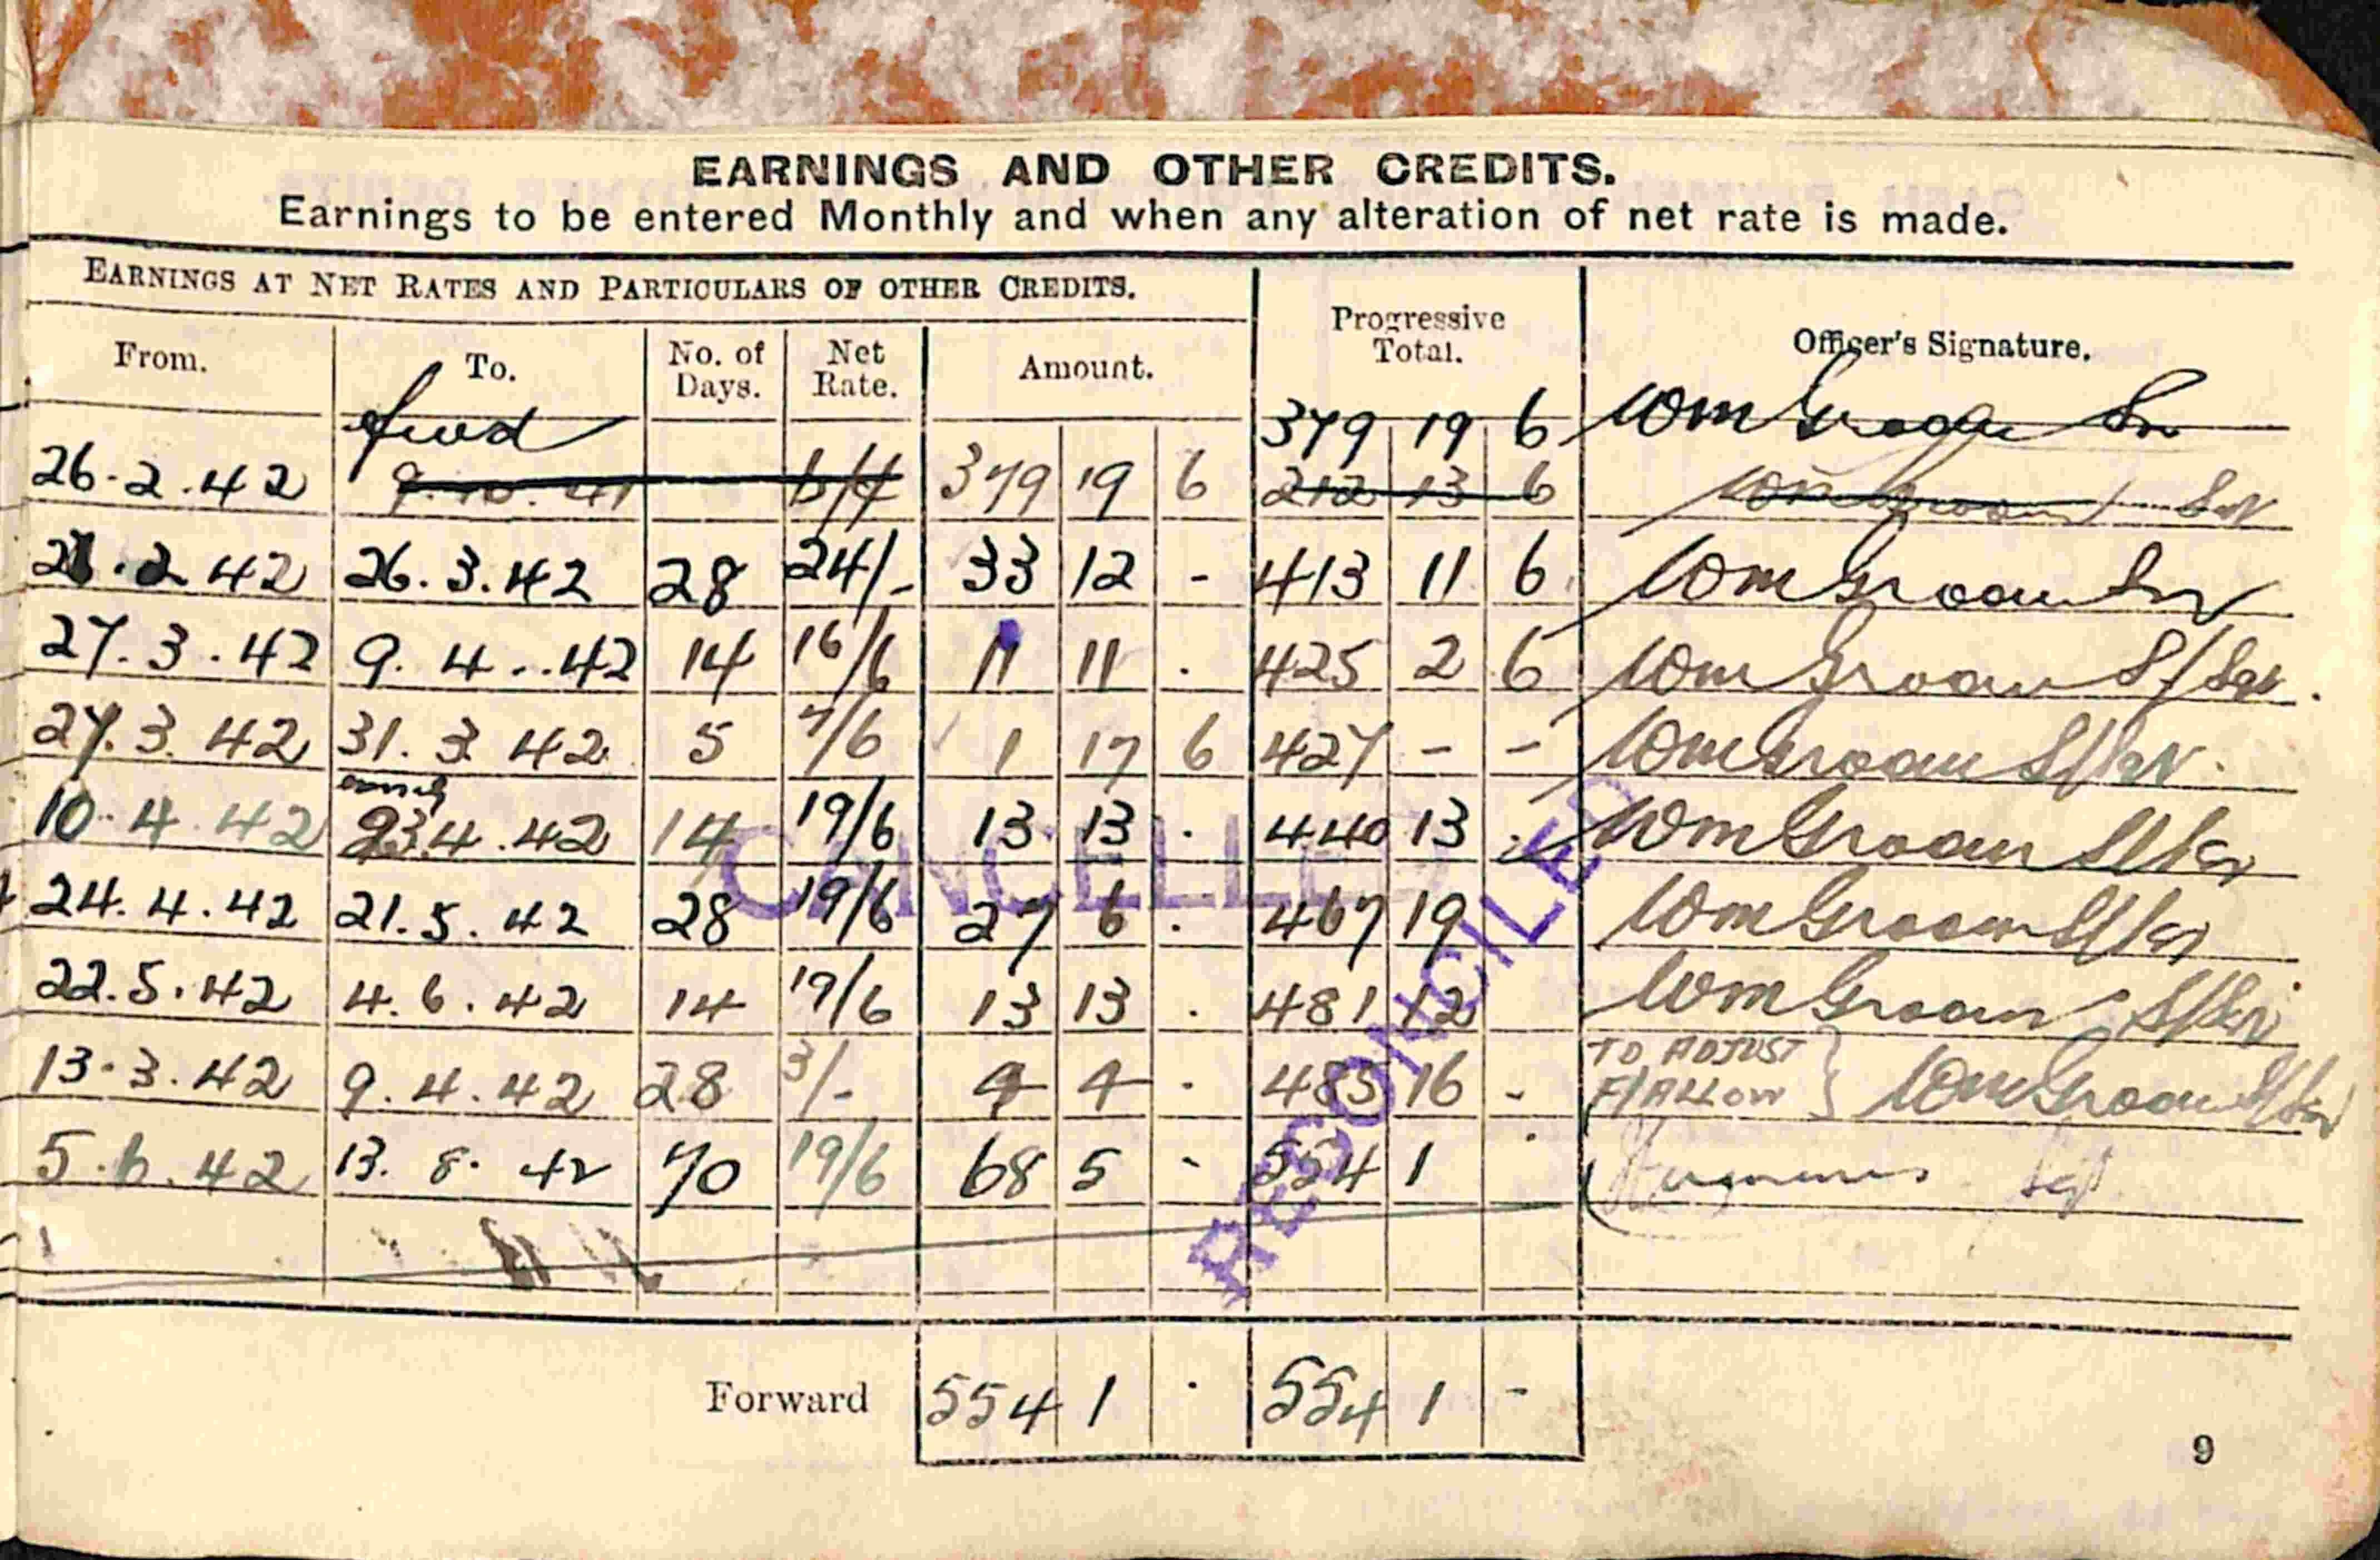 EARNINGS AND OTHER CREDITS.
Earnings to be entered Monthly and when any alteration of net rate is made.
EARNINGS AT NET RATES AND PARTICULARS OF OTHER CREDITS.
Progressive Total.
Officer's Signature.
From. To. No. of Days. Net Rate. Amount.
fwd 379 19 6
26.2.42 379 19 6 212 13 6
2.42 26.3.42 28 24/- 33 12 - 413 11 6
27.3.42 9.4..42 14 16/6 11 11 . 425 2 6
27.3.42 31.3.42 5 7/6 1 17 6 427 - -
10.4.42 23.4.42 14 19/6 13 13 . 440 13 .
24.4.42 21.5.42 28 19/6 27 6 . 467 19
22.5.42 4.6.42 14 19/6 13 13 . 481 12
13.3.42 9.4.42 28 3/- 4 4 . 485 16 - TO ADJUST F/ALLOW
5.6.42 13.8.42 70 19/6 68 5 - 554 1
CANCELLED
RECONCILED
Forward 554 1 . 554 1 -
9